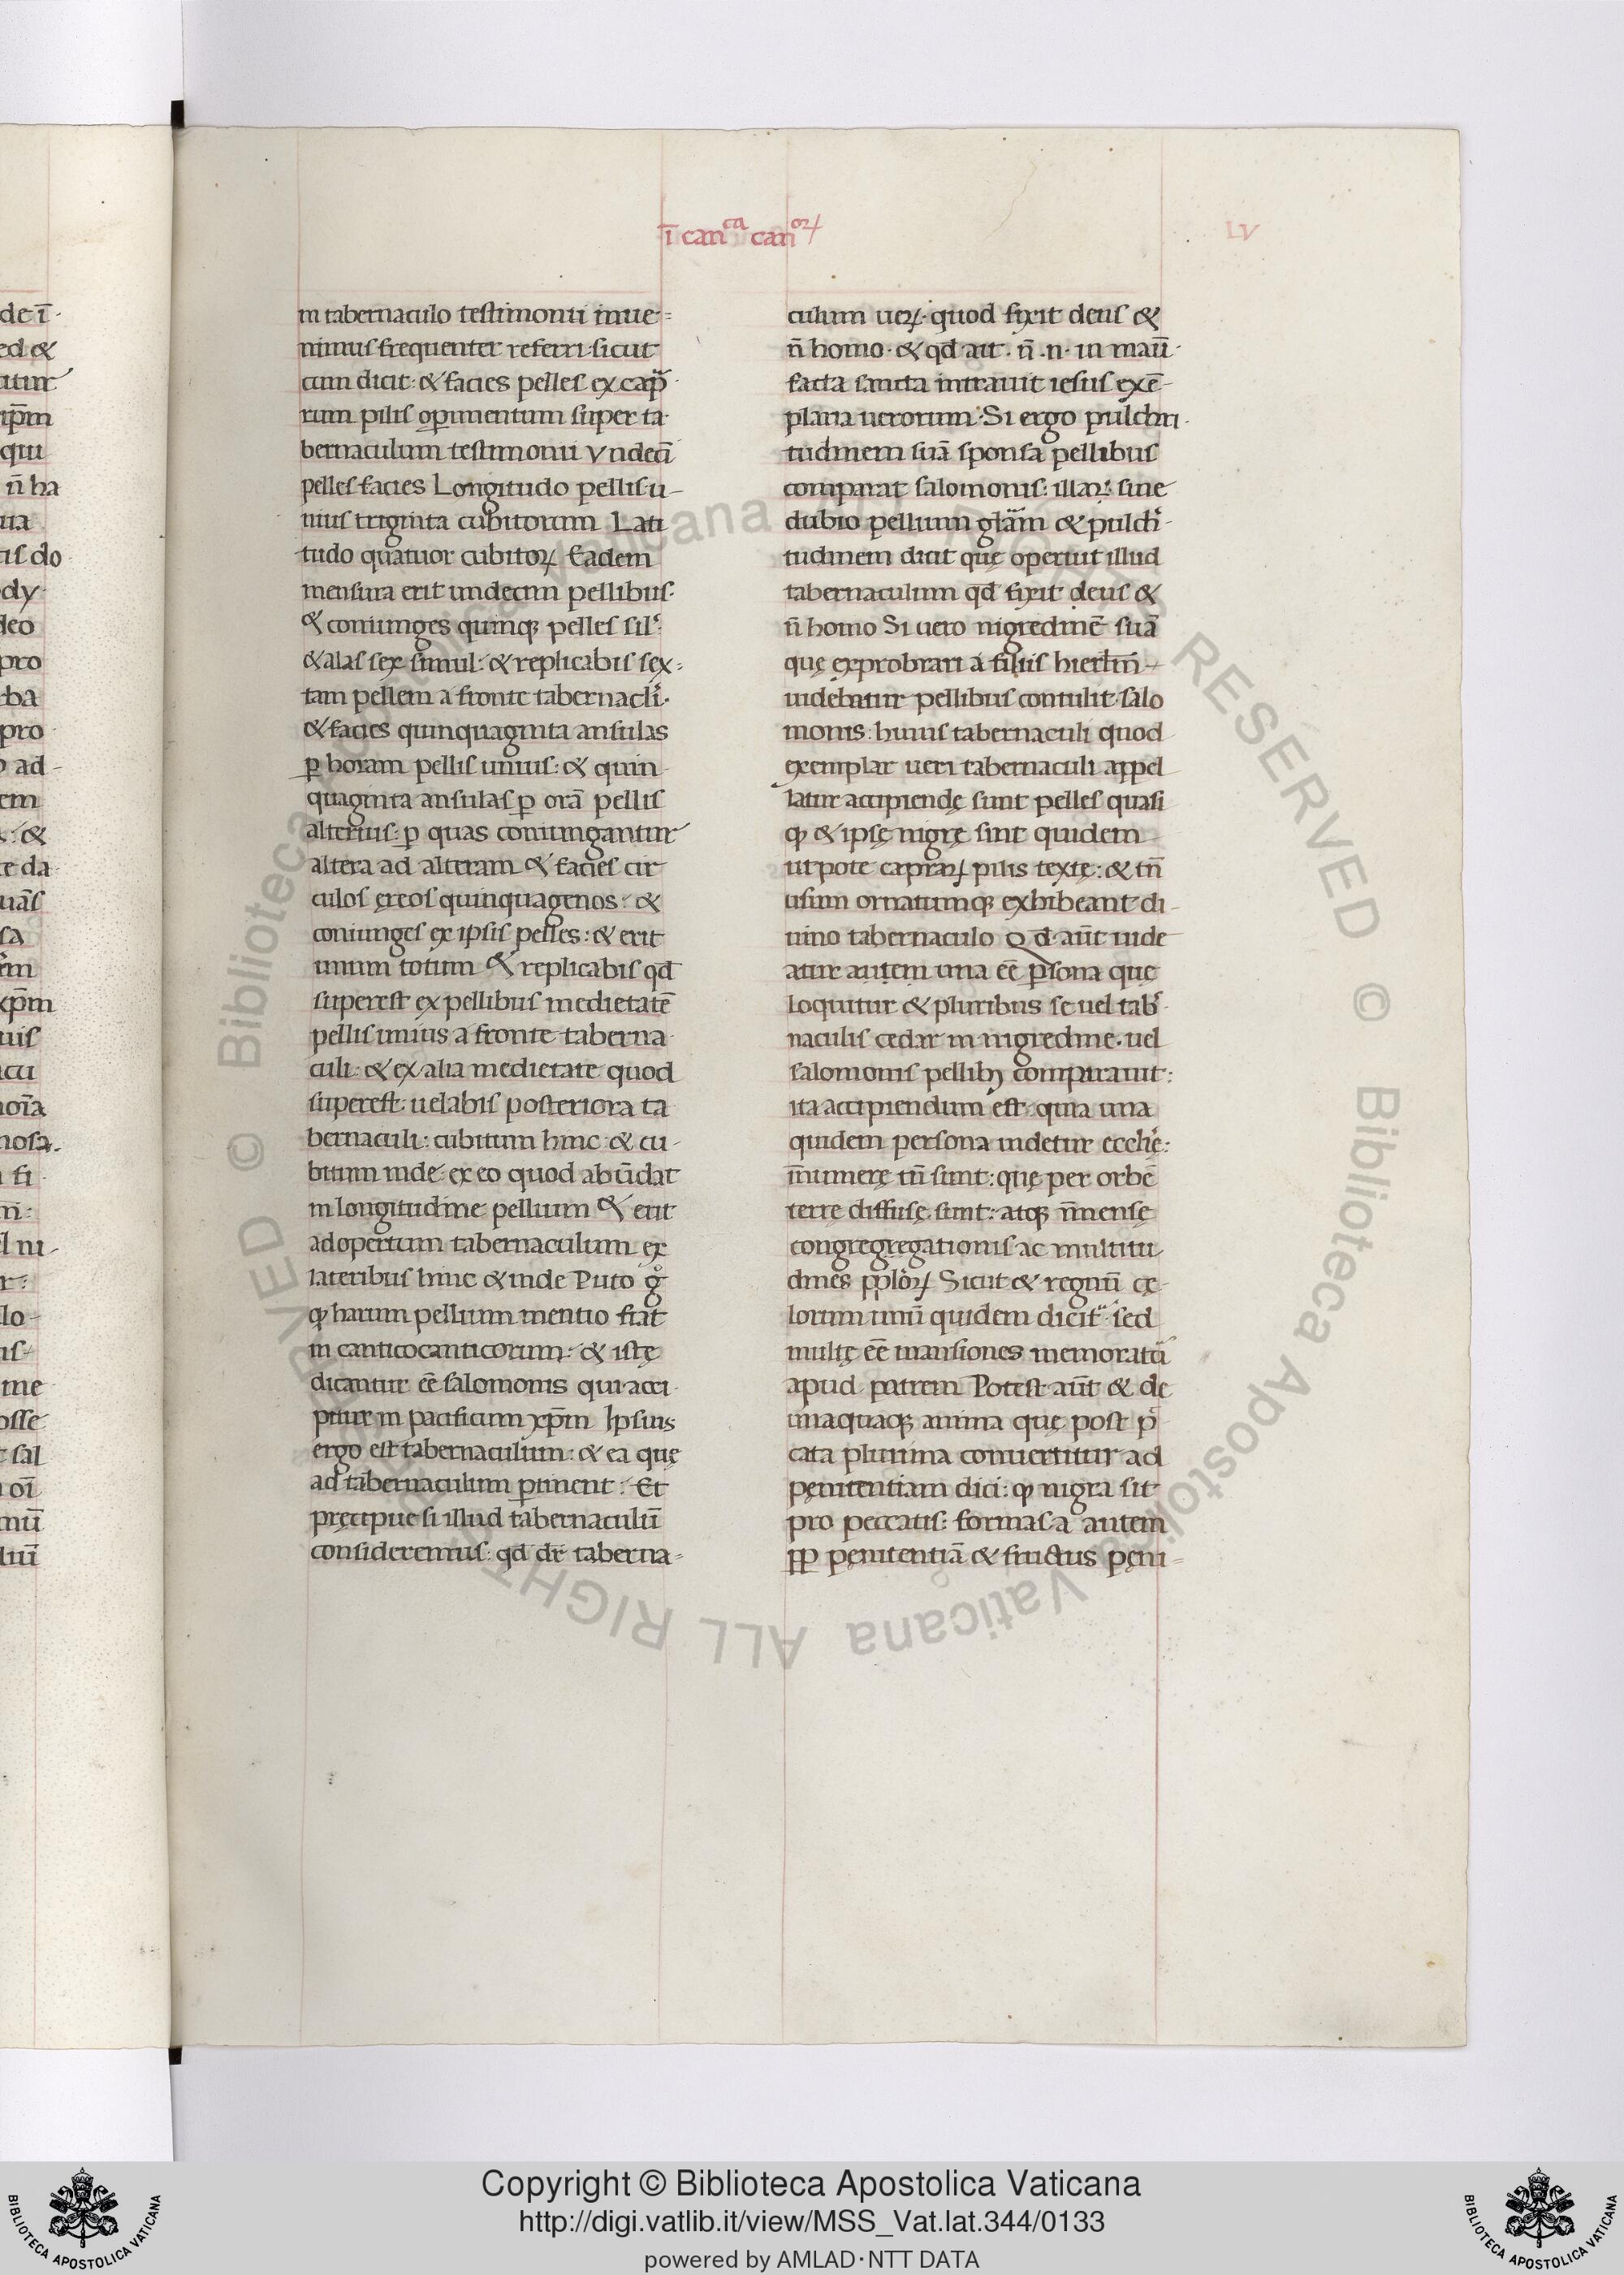 ī canca canoꝝ
LV
in tabernaculo testimonii inue-
nimus frequenter referri. sicut
cum dicit: & facies pelles ex cap̃
rum pilis opimentum super ta
bernaculum testimonii Vndecī
pelles facies Longitudo pellis u-
nius triginta cubitorum Lati
tudo quatuor cubitoꝝ Eadem
mensura erit undecim pellibus.
& coniunges quinqꝫ pelles sil᷒.
& alas sex simul: & replicabis sex-
tam pellem a fronte tabernacli.
& facies quinquaginta ansulas
ꝑ horam pellis unius: & quin
quaginta ansulas ꝑ orā pellis
alterius: ꝑ quas coniungantur
altera ad alteram & facies cir
culos ęreos quinquagenos: &
coniunges ex ipsis pelles: & erit
unum totum & replicabis qđ
superest ex pellibus medietatē
pellis unius a fronte taberna
culi: & ex alia medietate quod
superest: uelabis posteriora ta
bernaculi: cubitum hinc & cu-
bitum inde ex eo quod abūdat
in longitudine pellium & erit
adopertum tabernaculum ex
lateribus hinc & inde Puto gͦ
ꝙ harum pellium mentio fiat
in canticocanticorum: & istę
dicantur eē salomonis qui acci
pitur in pacificum xp̄m Ipsius
ergo est tabernaculum: & ea quę
ad tabernaculum ꝑtinent: Et
pręcipue si illud tabernaculū
consideremus: qđ dr̄ taberna-
culum ueꝝ. quod fixit deus &
n̄ homo. & qđ ait. n̄. n. in maū
facta sancta intrauit iesus exē-
plaria uerorum. Si ergo pulchri
tudinem suā sponsa pellibus
comparat salomonis: illaꝝ. sine
dubio pellium glām & pulch̓-
tudinem dicit quę operiut illud
tabernaculum qđ fixit deus &
n̄ homo Si uero nigredinē suā
quę exprobrari a filiis hierlm̄
uidebatur pellibus contulit salo
monis: huius tabernaculi quod
exemplar ueri tabernaculi appel
latur accipiendę sunt pelles quasi
ꝙ & ipsę nigrę sint quidem
utpote capraꝝ pilis textę: & tn̄
usum ornatumqꝫ exhibeant di-
uino tabernaculo Qđ. aūt uide
atur autem una eē ꝑsona quę
loquitur & pluribus se uel tab᷒
naculis cedar in nigredine. uel
salomonis pellibꝫ comparauit:
ita accipiendum est. quia una
quidem persona uidetur ecclię:
īnumerę tn̄ sunt: quę per orbē
terrę diffusę sunt: atqꝫ īmensę
congregregationis ac multitu
dines pploꝝ Sicut & regnū cę-
lorum unū quidem dicit᷒. sed
multę eē mansiones memorat᷒
apud patrem Potest aūt & de
unaquaqꝫ anima quę post pͨ
cata plurima conuertitur ad
pęnitentiam dici: ꝙ nigra sit
pro peccatis: formas a autem
ꝓꝑ pęnitentiā & fructus pęni-
de ī.
ed &
atur
ip̄m
qui
n̄ ha
ua
tis do
dy.
deo
pro
ba
pro
ad-
em
: &
te da
uas̄
sa
xp̄m
uis
acu
nosa.
fi
l ni-
lo-
is
me
osse
t sal
oī
nū
liū
© Biblioteca Apostolica Vaticana ALL RIGHTS RESERVED © Biblioteca Apostolica Vaticana ALL RIGHTS RESERVED
Copyright © Biblioteca Apostolica Vaticana
http://digi.vatlib.it/view/MSS_Vat.lat.344/0133
powered by AMLAD·NTT DATA
BIBLIOTECA APOSTOLICA VATICANA
BIBLIOTECA APOSTOLICA VATICANA